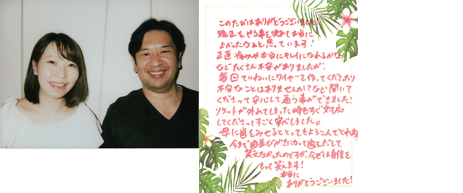 このたびはありがとうございました
矯正をやる事を決めて本当に
よかったなあと思っています！
正直痛みや本当にキレイになれるのか？
などたくさん不安がありましたが、
毎回ていねいにワイヤーを作ってくださったり
不安なことはありませんか？など聞いて
くださって安心して通う事ができました！
ブラケットが外れてしまった時もすぐ対応
してくださってすごく安心しました。
母に歯をみせるととってもよろこんでくれ
今まで歯並びが気になって歯をだして
笑えなかったのですが、今では自信を
もって笑えます！
本当に
ありがとうございました！